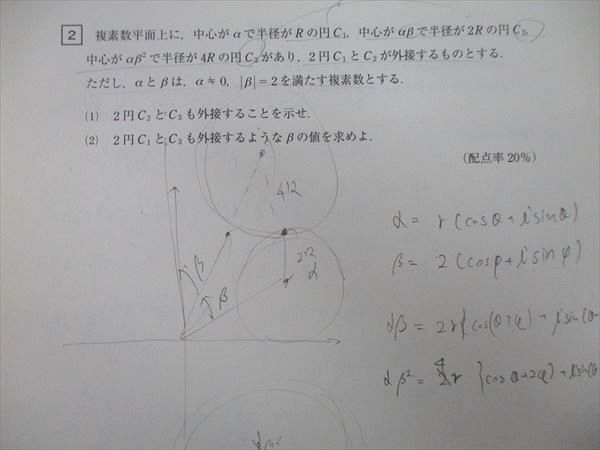 2 複素数平面上に，中心が α で半径が R の円 C₁，中心が αβ で半径が 2R の円 C₂，
中心が αβ² で半径が 4R の円 C₃ があり，2円 C₁ と C₂ が外接するものとする．
ただし，α と β は，α ≠ 0，|β| = 2 を満たす複素数とする．
(1) 2円 C₂ と C₃ も外接することを示せ．
(2) 2円 C₁ と C₃ も外接するような β の値を求めよ．
(配点率 20%)
4R
α = r (cosθ + i sinθ)
2R
β
α
β = 2 (cosφ + i sinφ)
β
αβ = 2r{cos(θ+φ) + i sin(θ
αβ² = 4r {cosθ+2φ) + i sin(